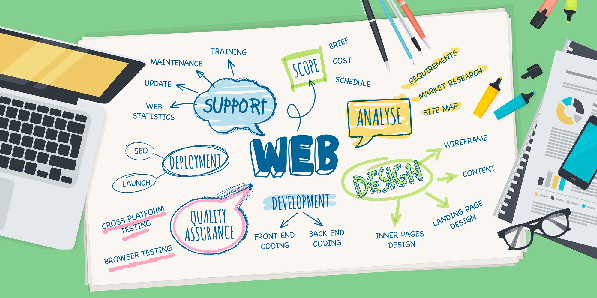 TRAINING
MAINTENANCE
UPDATE
WEB
STATISTICS
SUPPORT
SCOPE
BRIEF
COST
SCHEDULE
ANALYSE
REQUIREMENTS
MARKET RESEARCH
SITE MAP
SEO
DEPLOYMENT
LAUNCH
WEB
DESIGN
WIREFRAME
CONTENT
LANDING PAGE
DESIGN
INNER PAGES
DESIGN
QUALITY
ASSURANCE
CROSS PLATFORM
TESTING
BROWSER TESTING
DEVELOPMENT
FRONT END
CODING
BACK END
CODING